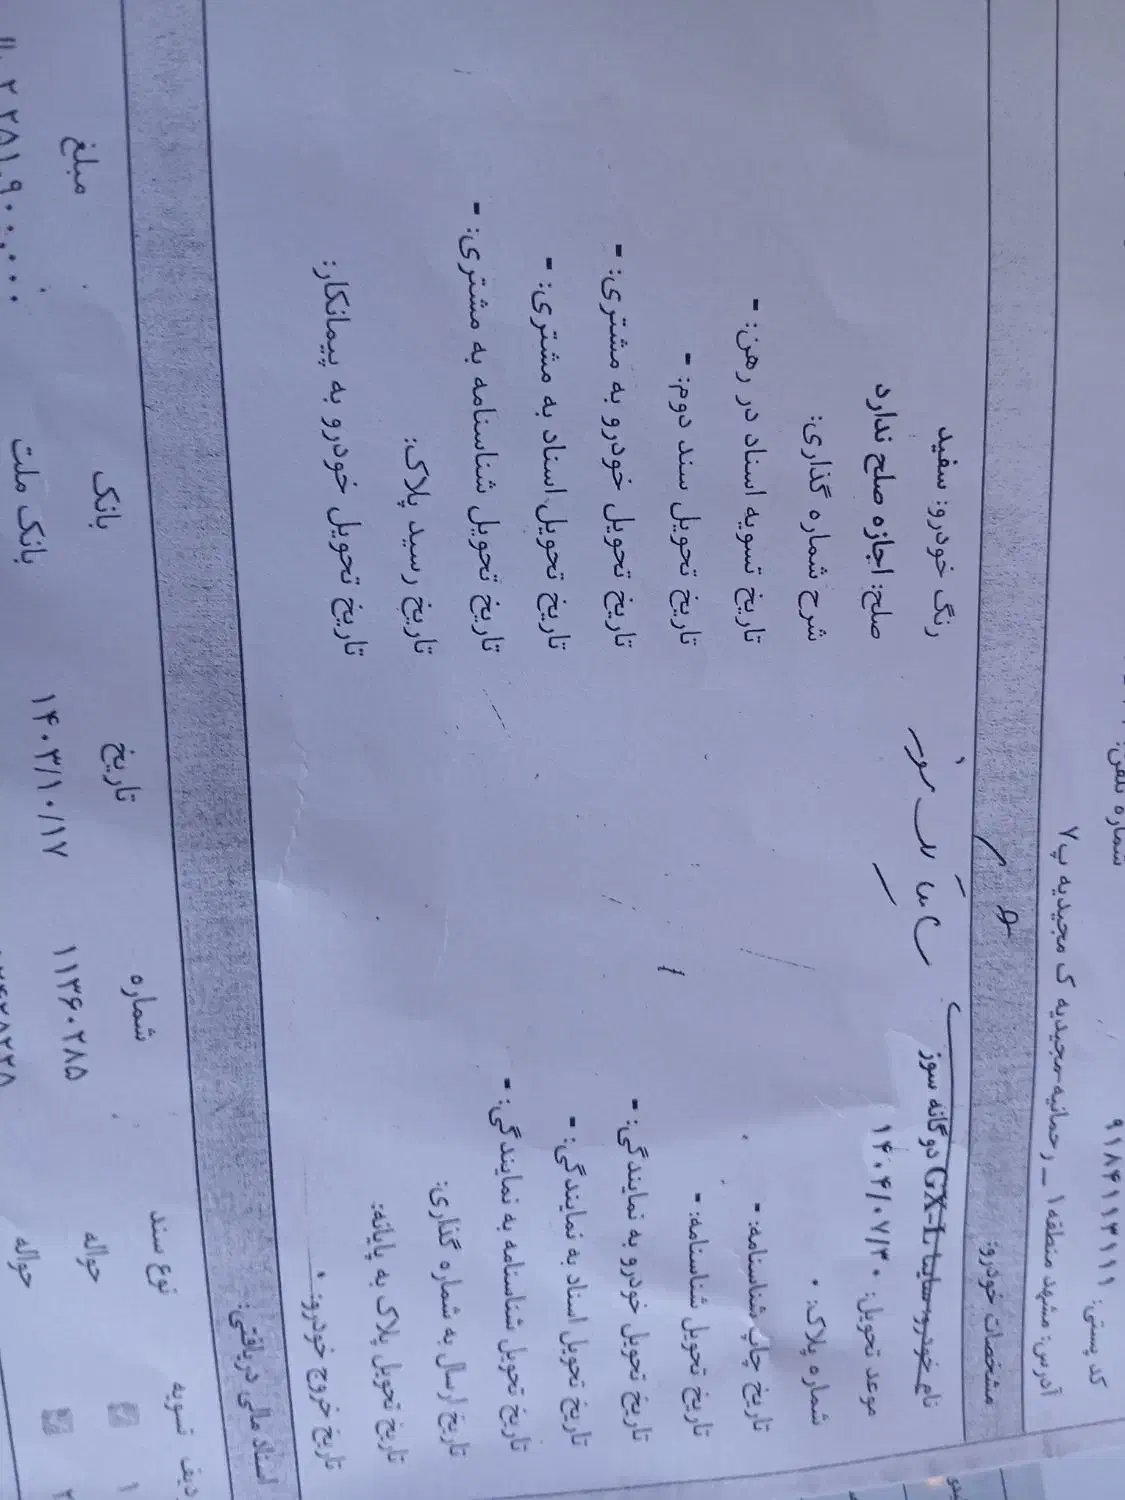 کد پستی: ۹۱۸۴۱۱۳۱۱۱
آدرس: مشهد منطقه ۱ _ رحمانیه-مجیدیه ک مجیدیه پ ۷
مشخصات خودرو:
نام خودرو: ساینا GX-L دوگانه سوز
رنگ خودرو: سفید
موعد تحویل: ۱۴۰۴/۰۷/۳۰
صلح: اجازه صلح ندارد
شماره پلاک: ۰
شرح شماره گذاری:
تاریخ چاپ شناسنامه: -
تاریخ تسویه اسناد در رهن: -
تاریخ تحویل شناسنامه: -
تاریخ تحویل سند دوم: -
تاریخ تحویل خودرو به نمایندگی: -
تاریخ تحویل خودرو به مشتری: -
تاریخ تحویل اسناد به نمایندگی: -
تاریخ تحویل اسناد به مشتری: -
تاریخ تحویل شناسنامه به نمایندگی: -
تاریخ تحویل شناسنامه به مشتری: -
تاریخ ارسال به شماره گذاری:
تاریخ رسید پلاک:
تاریخ تحویل پلاک به پایانه:
تاریخ تحویل خودرو به پیمانکار:
تاریخ خروج خودرو: ۰
اسناد مالی دریافتی:
تسویه نوع سند شماره تاریخ بانک مبلغ
۱ حواله ۱۱۳۶۰۲۸۵ ۱۴۰۳/۱۰/۱۷ بانک ملت
۲ حواله